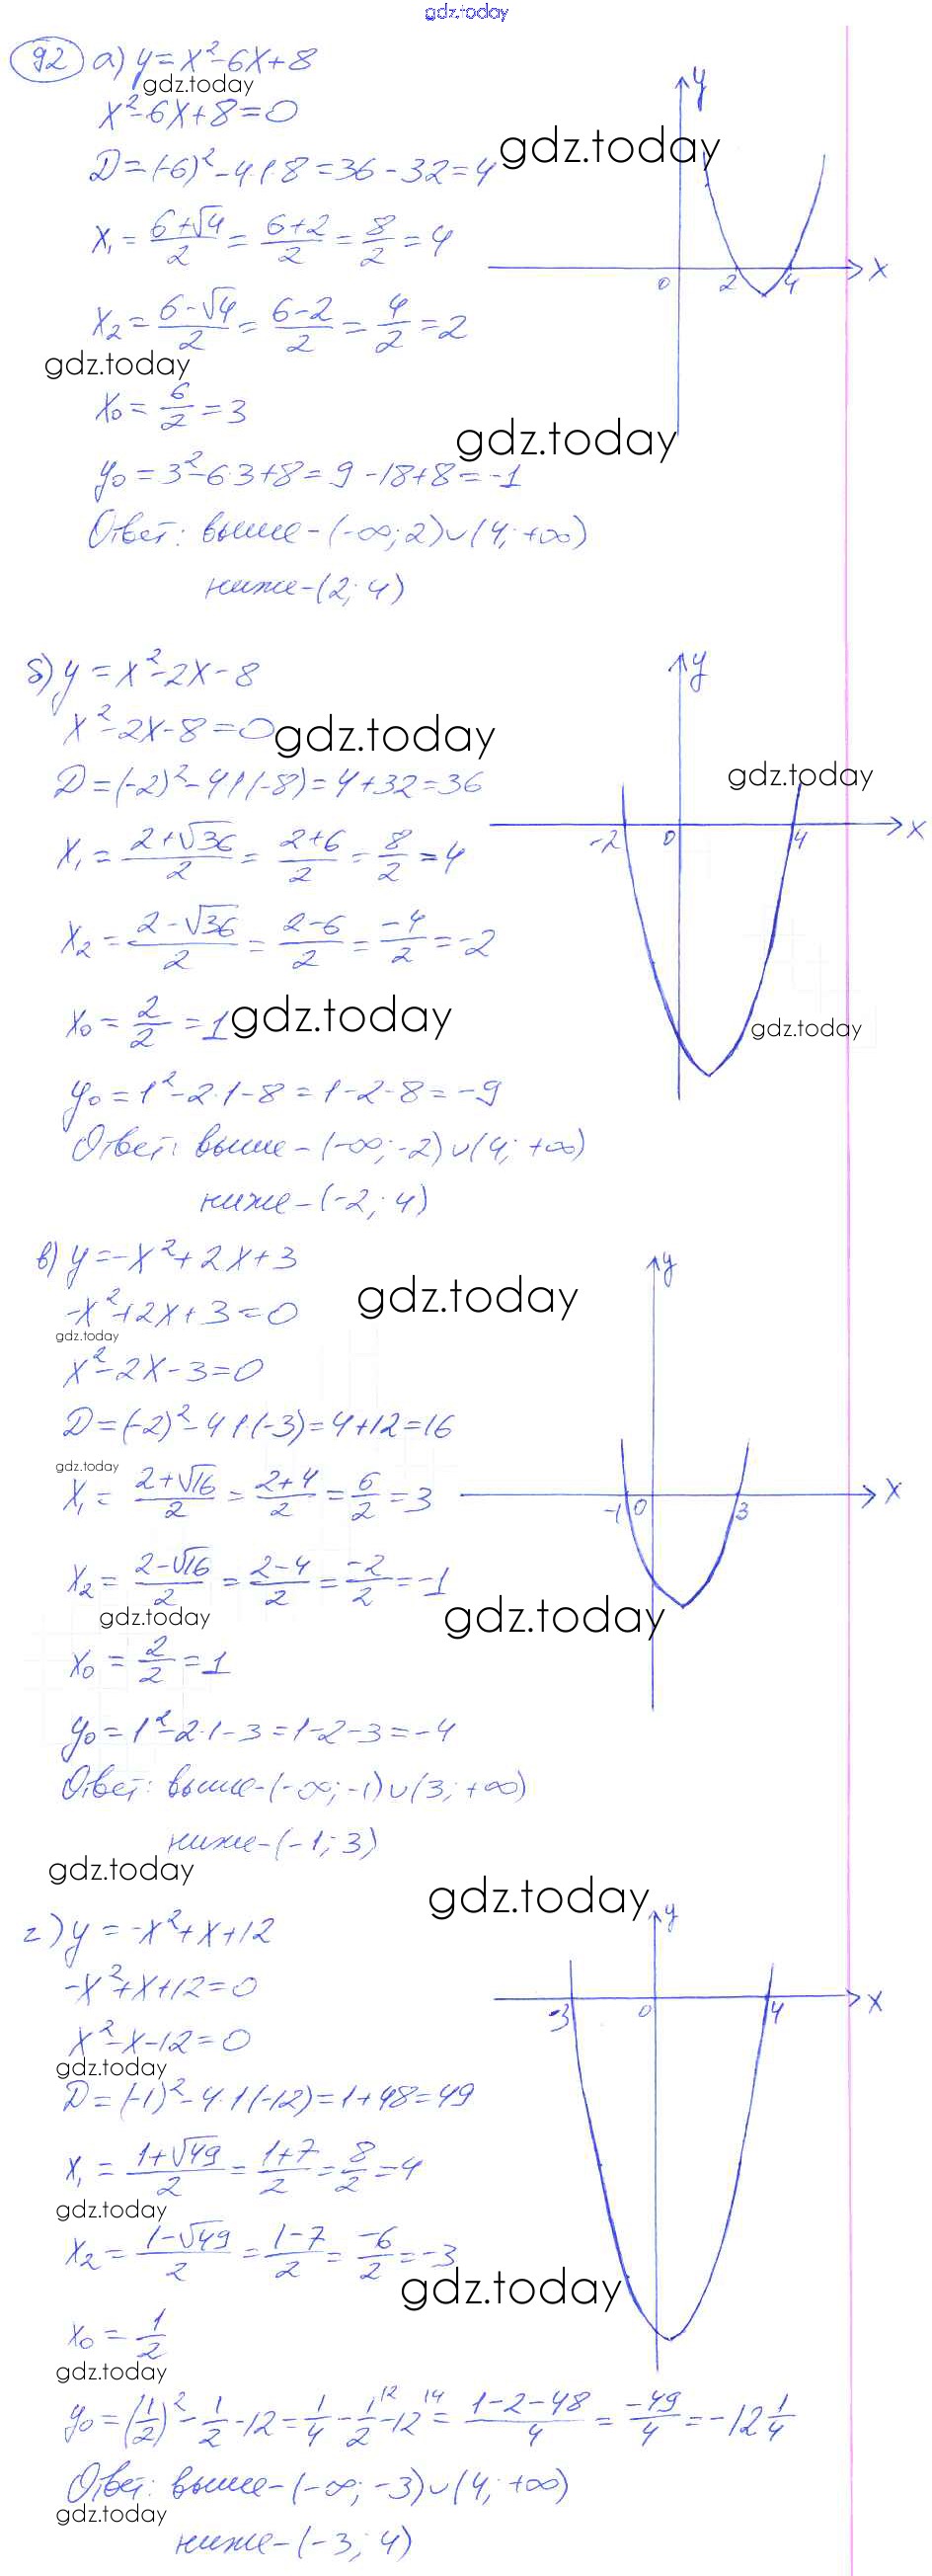 gdz.today
92 а) y = x² - 6x + 8
gdz.today
x² - 6x + 8 = 0
D = (-6)² - 4·1·8 = 36 - 32 = 4
gdz.today
y
x₁ = (6 + √4)/2 = (6 + 2)/2 = 8/2 = 4
0 2 4 x
x₂ = (6 - √4)/2 = (6 - 2)/2 = 4/2 = 2
gdz.today
x₀ = 6/2 = 3
gdz.today
y₀ = 3² - 6·3 + 8 = 9 - 18 + 8 = -1
Ответ: выше - (-∞; 2) ∪ (4; +∞)
ниже - (2; 4)
б) y = x² - 2x - 8
y
x² - 2x - 8 = 0
gdz.today
D = (-2)² - 4·1·(-8) = 4 + 32 = 36
gdz.today
x₁ = (2 + √36)/2 = (2 + 6)/2 = 8/2 = 4
-2 0 4 x
x₂ = (2 - √36)/2 = (2 - 6)/2 = -4/2 = -2
x₀ = 2/2 = 1
gdz.today
gdz.today
y₀ = 1² - 2·1 - 8 = 1 - 2 - 8 = -9
Ответ: выше - (-∞; -2) ∪ (4; +∞)
ниже - (-2; 4)
в) y = -x² + 2x + 3
y
-x² + 2x + 3 = 0
gdz.today
gdz.today
x² - 2x - 3 = 0
D = (-2)² - 4·1·(-3) = 4 + 12 = 16
gdz.today
x₁ = (2 + √16)/2 = (2 + 4)/2 = 6/2 = 3
-1 0 3 x
x₂ = (2 - √16)/2 = (2 - 4)/2 = -2/2 = -1
gdz.today
gdz.today
x₀ = 2/2 = 1
y₀ = 1² - 2·1 - 3 = 1 - 2 - 3 = -4
Ответ: выше - (-∞; -1) ∪ (3; +∞)
ниже - (-1; 3)
gdz.today
gdz.today
г) y = -x² + x + 12
y
-x² + x + 12 = 0
-3 0 4 x
x² - x - 12 = 0
gdz.today
D = (-1)² - 4·1·(-12) = 1 + 48 = 49
x₁ = (1 + √49)/2 = (1 + 7)/2 = 8/2 = 4
gdz.today
x₂ = (1 - √49)/2 = (1 - 7)/2 = -6/2 = -3
gdz.today
x₀ = 1/2
gdz.today
y₀ = (1/2)² - 1/2 - 12 = 1/4 - 1/2 \2 - 12 \4 = (1 - 2 - 48)/4 = -49/4 = -12 1/4
Ответ: выше - (-∞; -3) ∪ (4; +∞)
gdz.today
ниже - (-3; 4)